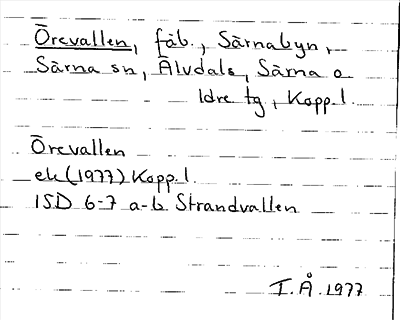 Örevallen, fäb., Särnabyn,
Särna sn, Älvdals, Särna o
Idre tg, Kopp. l.
Örevallen
ek (1977) Kopp. l.
15D 6-7 a-b Strandvallen
T.Å. 1977